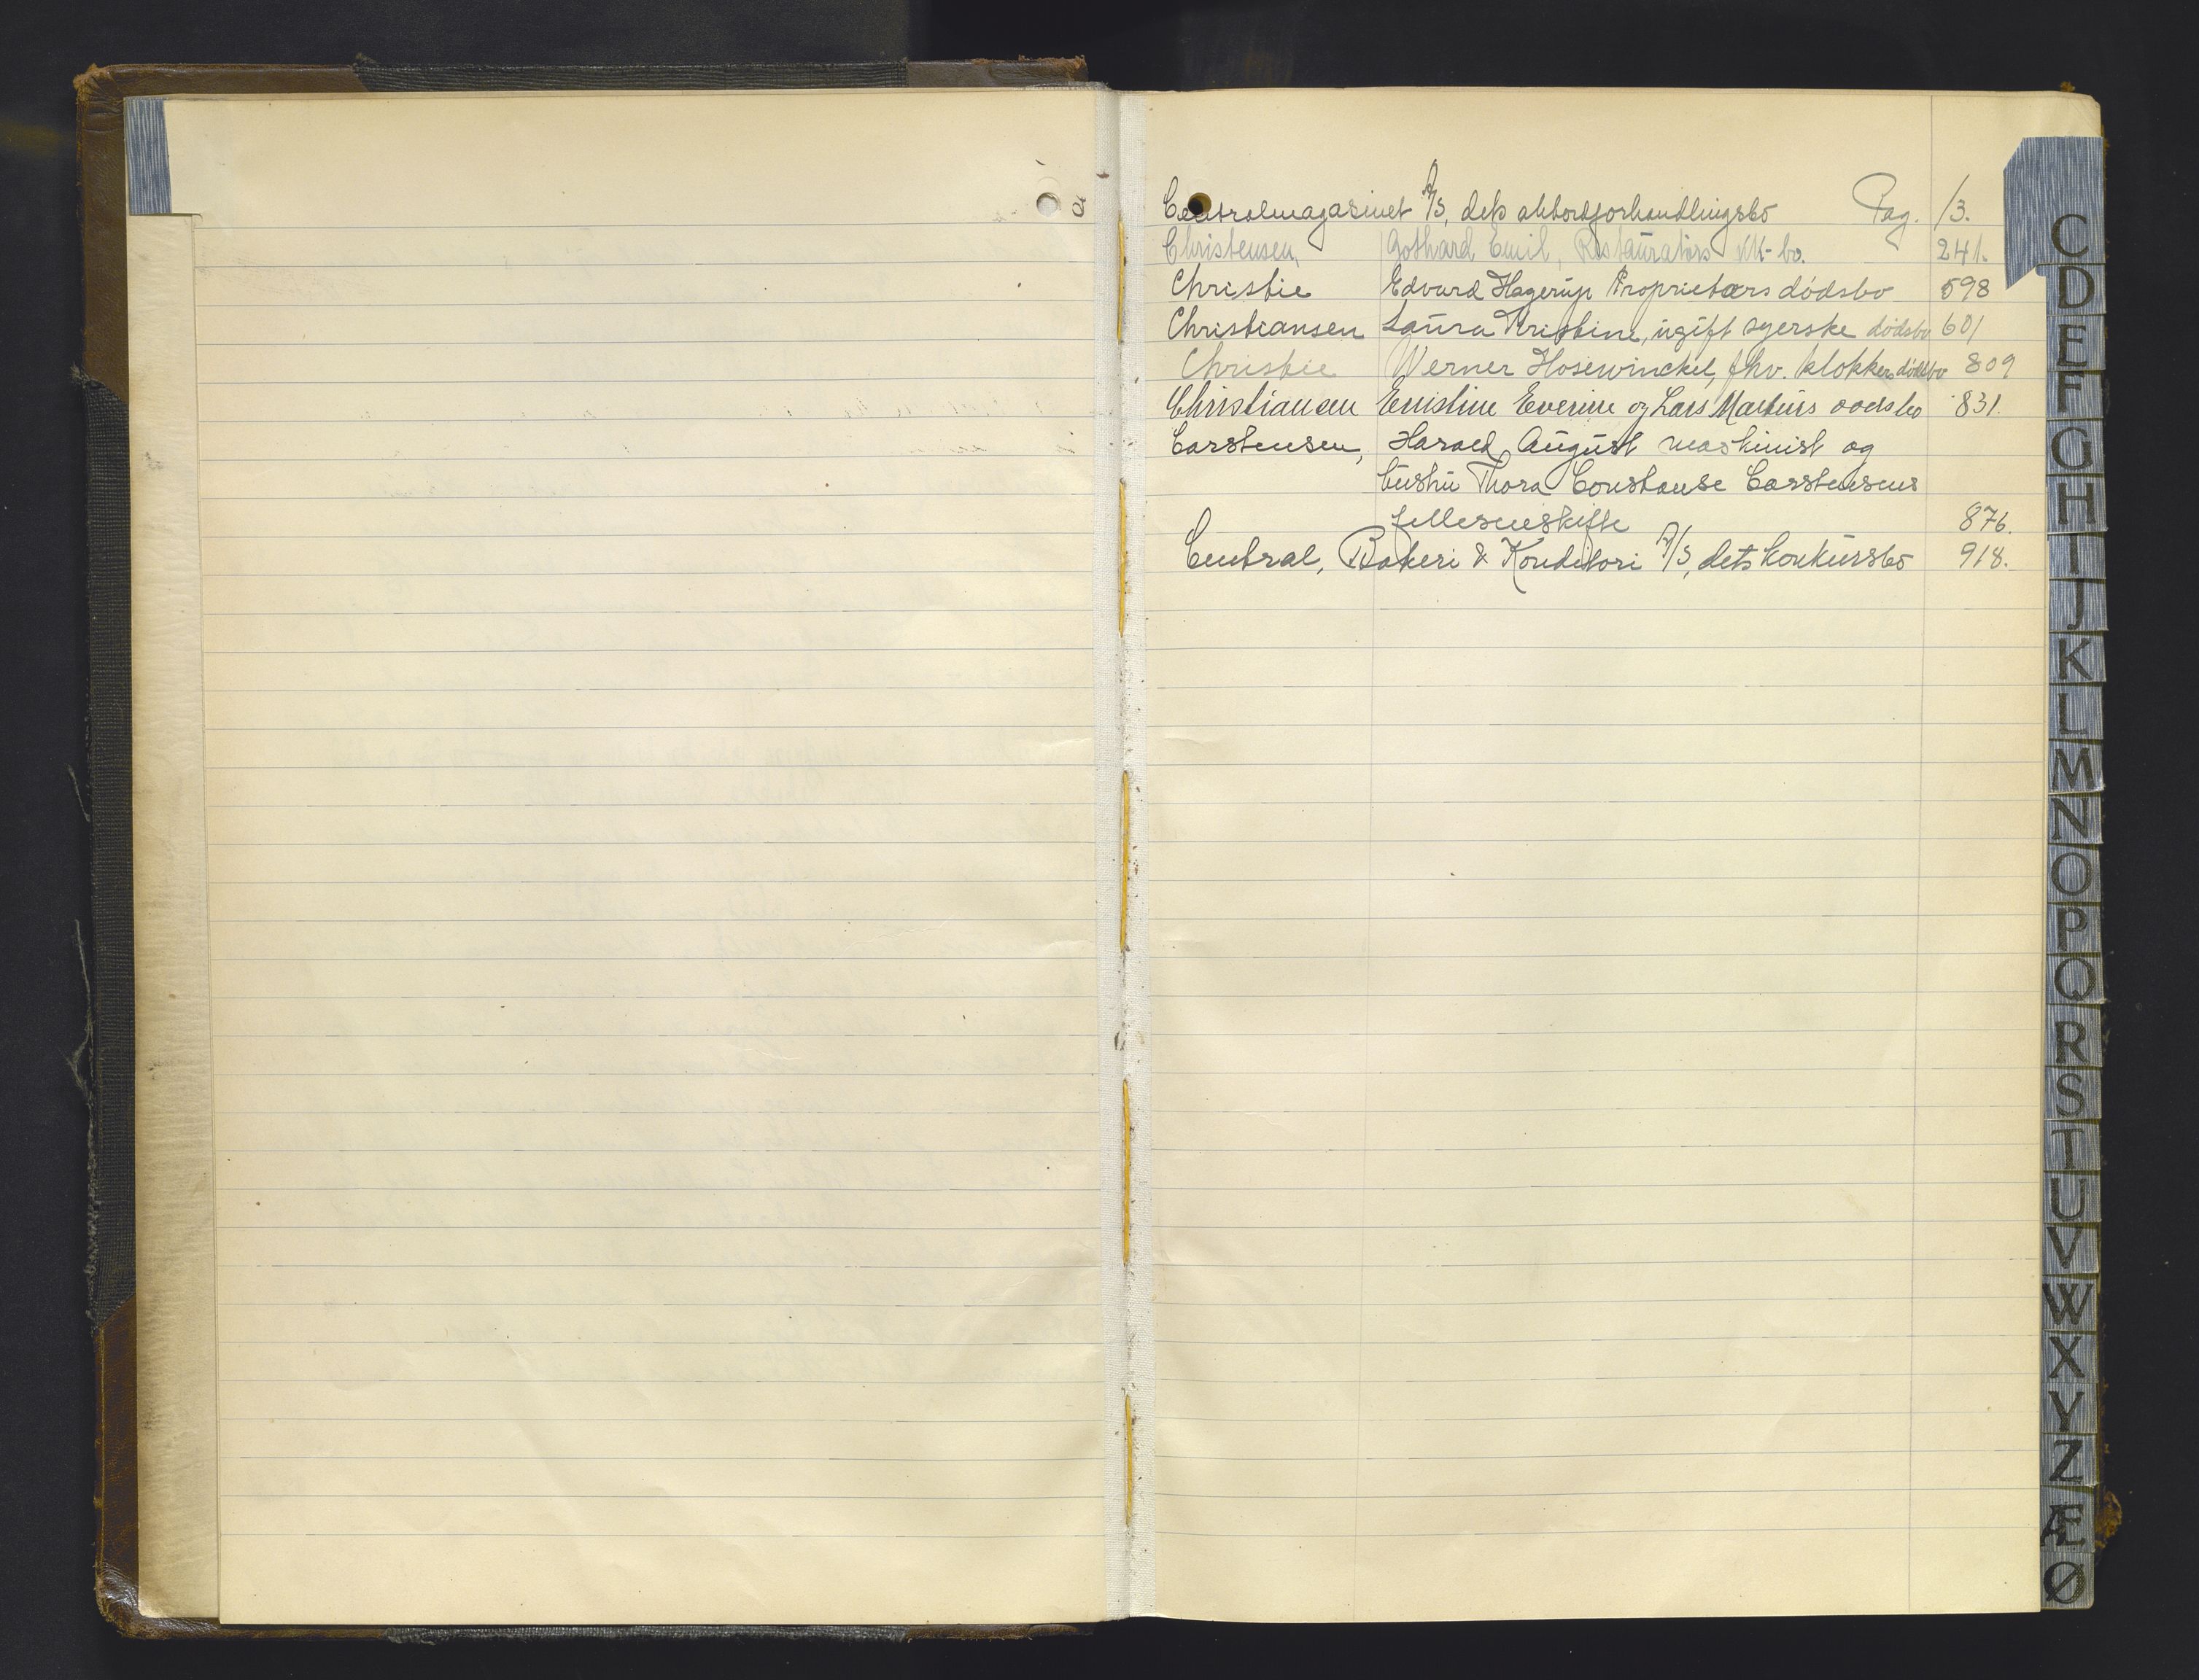 Centralmagasinet A/S, dets akkordforhandlingsbo Pag. 13.
Christensen, Gothard Emil, Restauratørs KK-bo. 241.
Christie Edvard Hagerup Proprietærs dødsbo 598
Christiansen Laura Kristine, ugift syerske dødsbo 601
Christie Werner Hosewinckel, fhv. klokkers dødsbo 809
Christiansen Everine og Lars Martins dødsbo 831.
Carstensen, Harald August maskinist og
hustru Thora Constanse Carstensens
fellesskifte 876.
Central, Bakeri & Konditori A/S, dets konkursbo 918.
C
D
E
F
G
H
I
J
K
L
M
N
O
P
Q
R
S
T
U
V
W
X
Y
Z
Æ
Ø